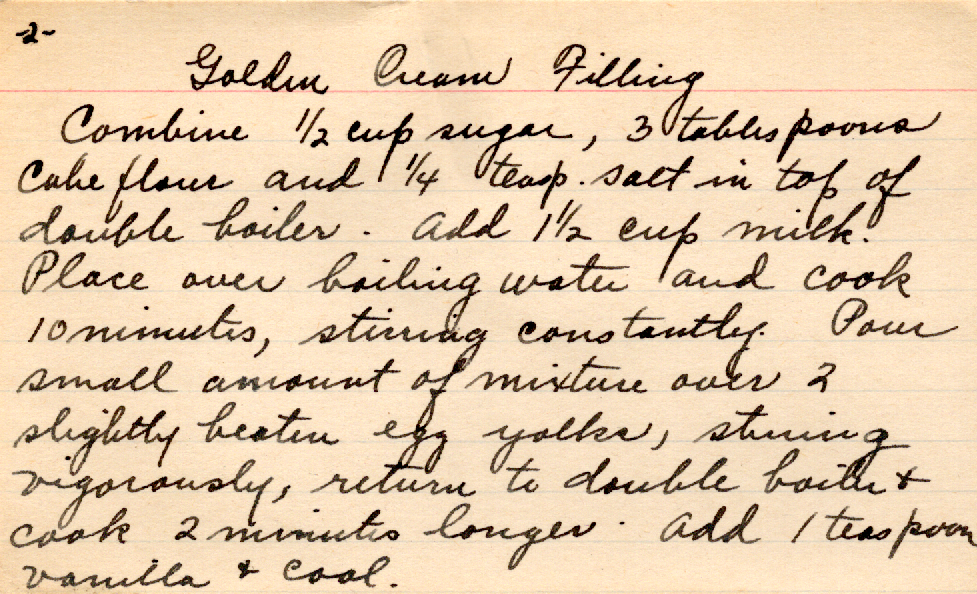 -2-
Golden Cream Filling
Combine 1/2 cup sugar, 3 tablespoons
cake flour and 1/4 teasp. salt in top of
double boiler. Add 1 1/2 cup milk.
Place over boiling water and cook
10 minutes, stirring constantly. Pour
small amount of mixture over 2
slightly beaten egg yolks, stirring
vigorously, return to double boiler +
cook 2 minutes longer. Add 1 teaspoon
vanilla + cool.